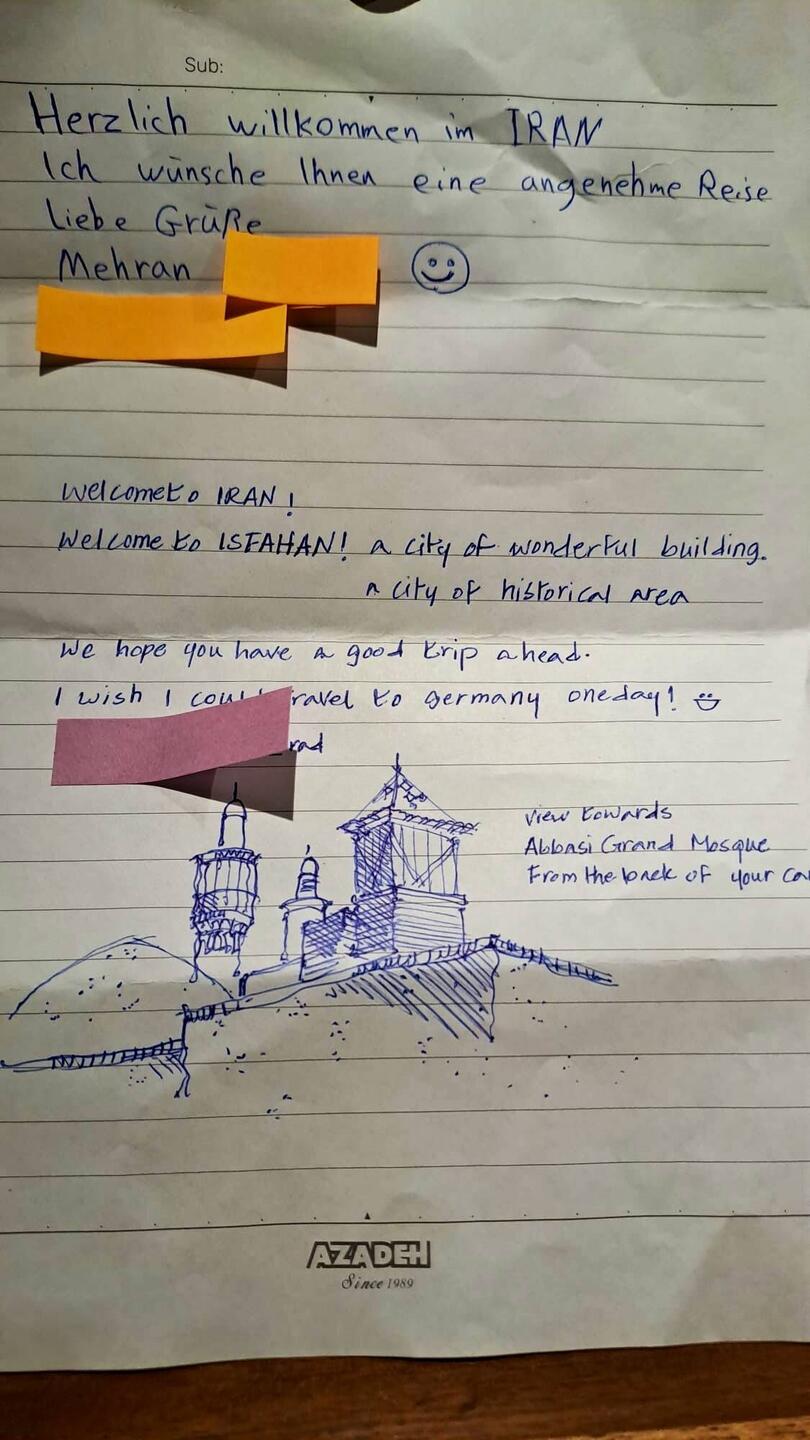 Sub:
Herzlich willkommen im IRAN
Ich wünsche Ihnen eine angenehme Reise
Liebe Grüße
Mehran
Welcome to IRAN!
Welcome to ISFAHAN! a city of wonderful building.
a city of historical area
We hope you have a good trip ahead.
I wish I could travel to germany oneday!
rad
view towards
Abbasi Grand Mosque
From the back of your
AZADEH
Since 1989